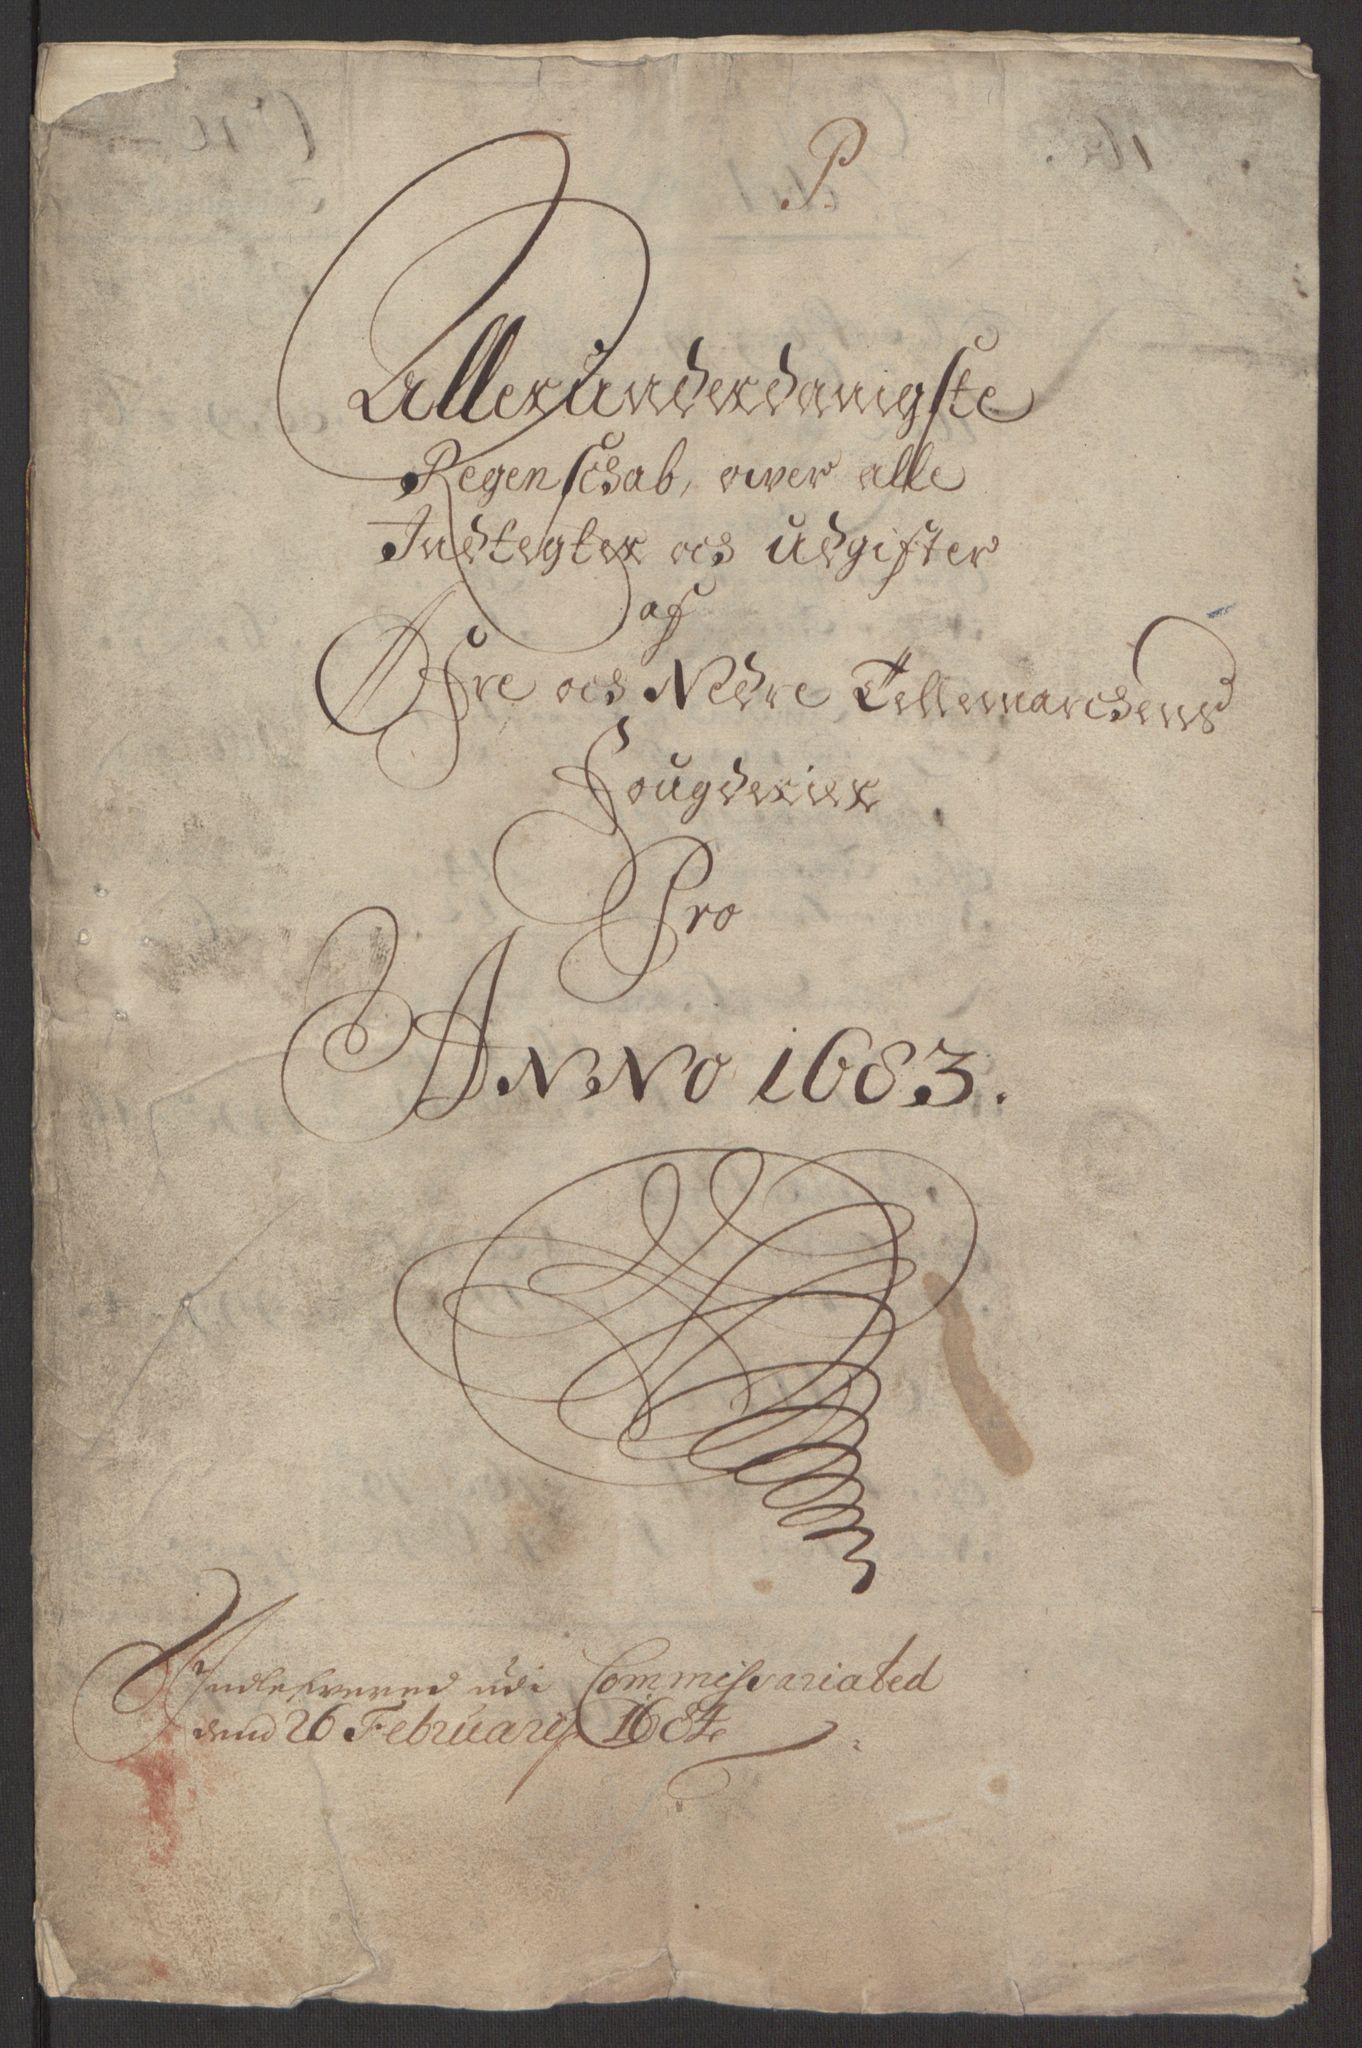 P
Allerunderdanigste
Regenschab, ower alle
Indtegter och Udgifter
af
Øfre och Nedre Tellemarchens
Fougderier
Pro
ANNO 1683.
Indlefvered udi Commissariated
dend 26 Februarij 1684